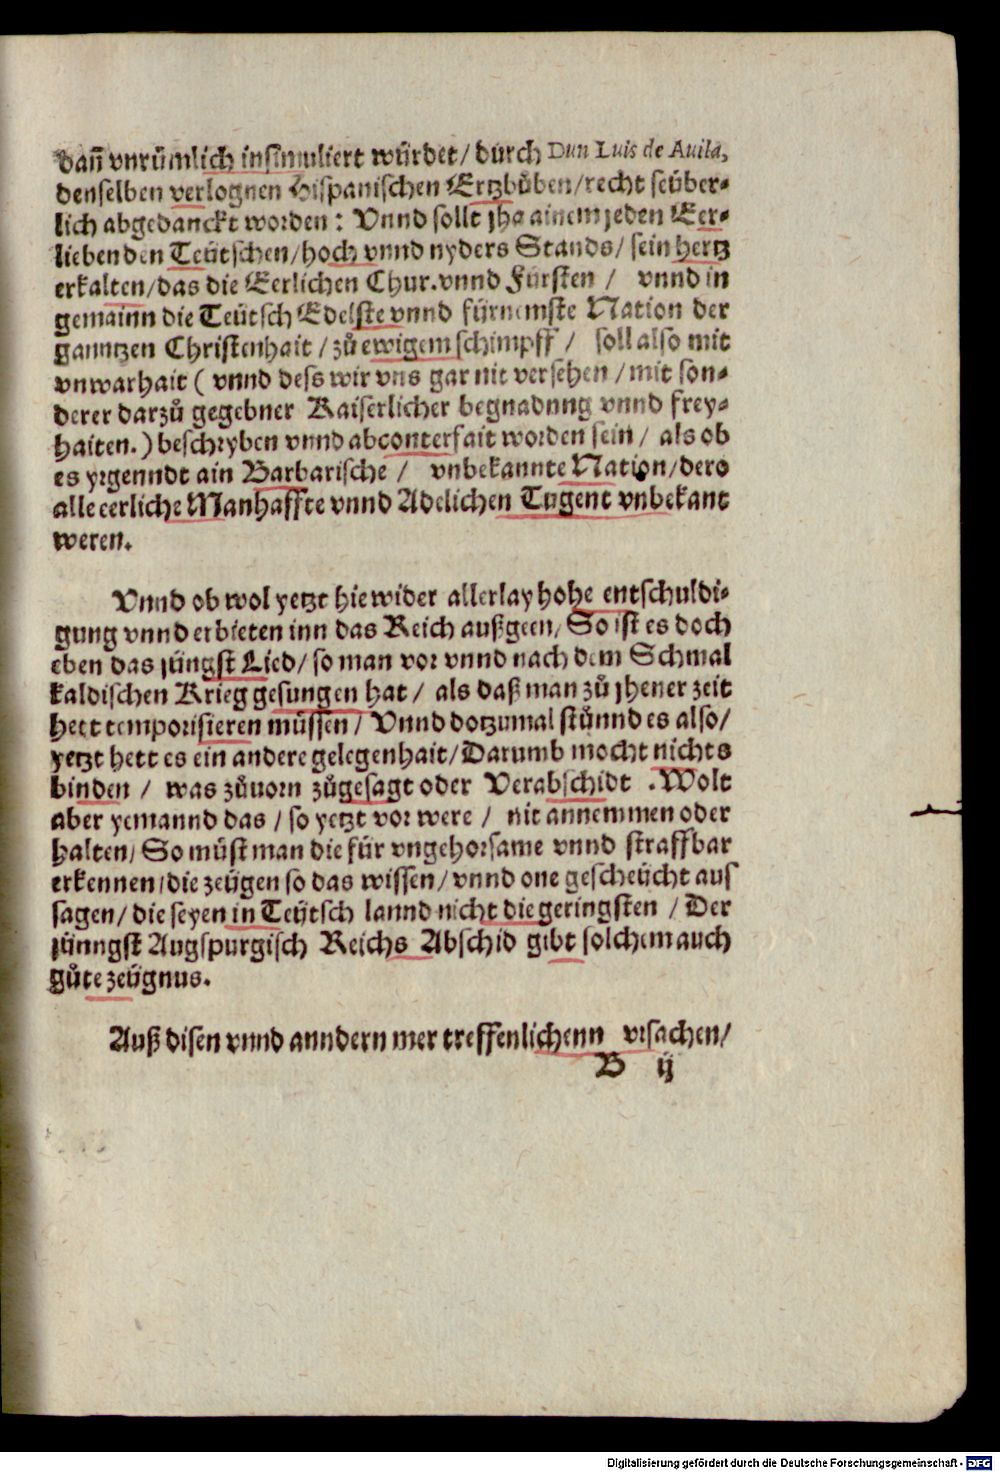 dañ vnrümlich insimuliert würdet/ durch Dun Luis de Auila,
denselben verlognen Hispanischen Ertzbůben/recht seüber-
lich abgedanckt worden: Vnnd sollt jha ainem jeden Eer-
liebenden Teütschen/hoch vnnd nyders Stands/ sein hertz
erkalten/das die Eerlichen Chur.vnnd Fürsten / vnnd in
gemainn die Teütsch Edelste vnnd fürnemste Nation der
ganntzen Christenhait /zů ewigem schimpff / soll also mit
vnwarhait ( vnnd dess wir vns gar nit versehen /mit son-
derer darzů gegebner Kaiserlicher begnadung vnnd frey-
haiten.) beschryben vnnd abconterfait worden sein/ als ob
es yrgenndt ain Barbarische / vnbekannte Nation/dero
alle eerliche Manhaffte vnnd Adelichen Tugent vnbekant
weren.
Vnnd ob wol yetzt hiewider allerlay hohe entschuldi-
gung vnnd erbieten inn das Reich außgeen/ So ist es doch
eben das jüngst Lied/ so man vor vnnd nach dem Schmal
kaldischen Krieg gesungen hat / als daß man zů jhener zeit
hett temporisieren müssen/ Vnnd dotzumal stünnd es also/
yetzt hett es ein andere gelegenhait/Darumb mocht nichts
binden / was zůuorn zůgesagt oder Verabschidt .Wolt
aber yemannd das / so yetzt vor were / nit annemmen oder
halten/ So müst man die für vngehorsame vnnd straffbar
erkennen/die zeügen so das wissen/ vnnd one gescheücht aus
sagen/ die seyen in Teütsch lannd nicht die geringsten /Der
jünngst Augspurgisch Reichs Abschid gibt solchem auch
gůte zeügnus.
Auß disen vnnd anndern mer treffenlichenn vrsachen/
B ij
Digitalisierung gefördert durch die Deutsche Forschungsgemeinschaft - DFG